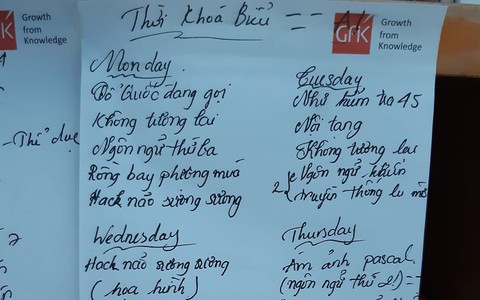 Thời Khoá Biểu == A1
GfK Growth
from
Knowledge
GfK Growth
from
Knowledge
Monday
Tổ Quốc đang gọi
Không tương lai
Ngôn ngữ thứ ba
Rồng bay phượng múa
Hack não sương sương
Tuesday
Như hùm
Nội tang
Không tương lai
Ngôn ngữ
truyền thông
- Thể dục
Wednesday
Hack não sương sương
(hoa hình)
Thursday
Ám ảnh pascal
(ngôn ngữ thứ 2!)